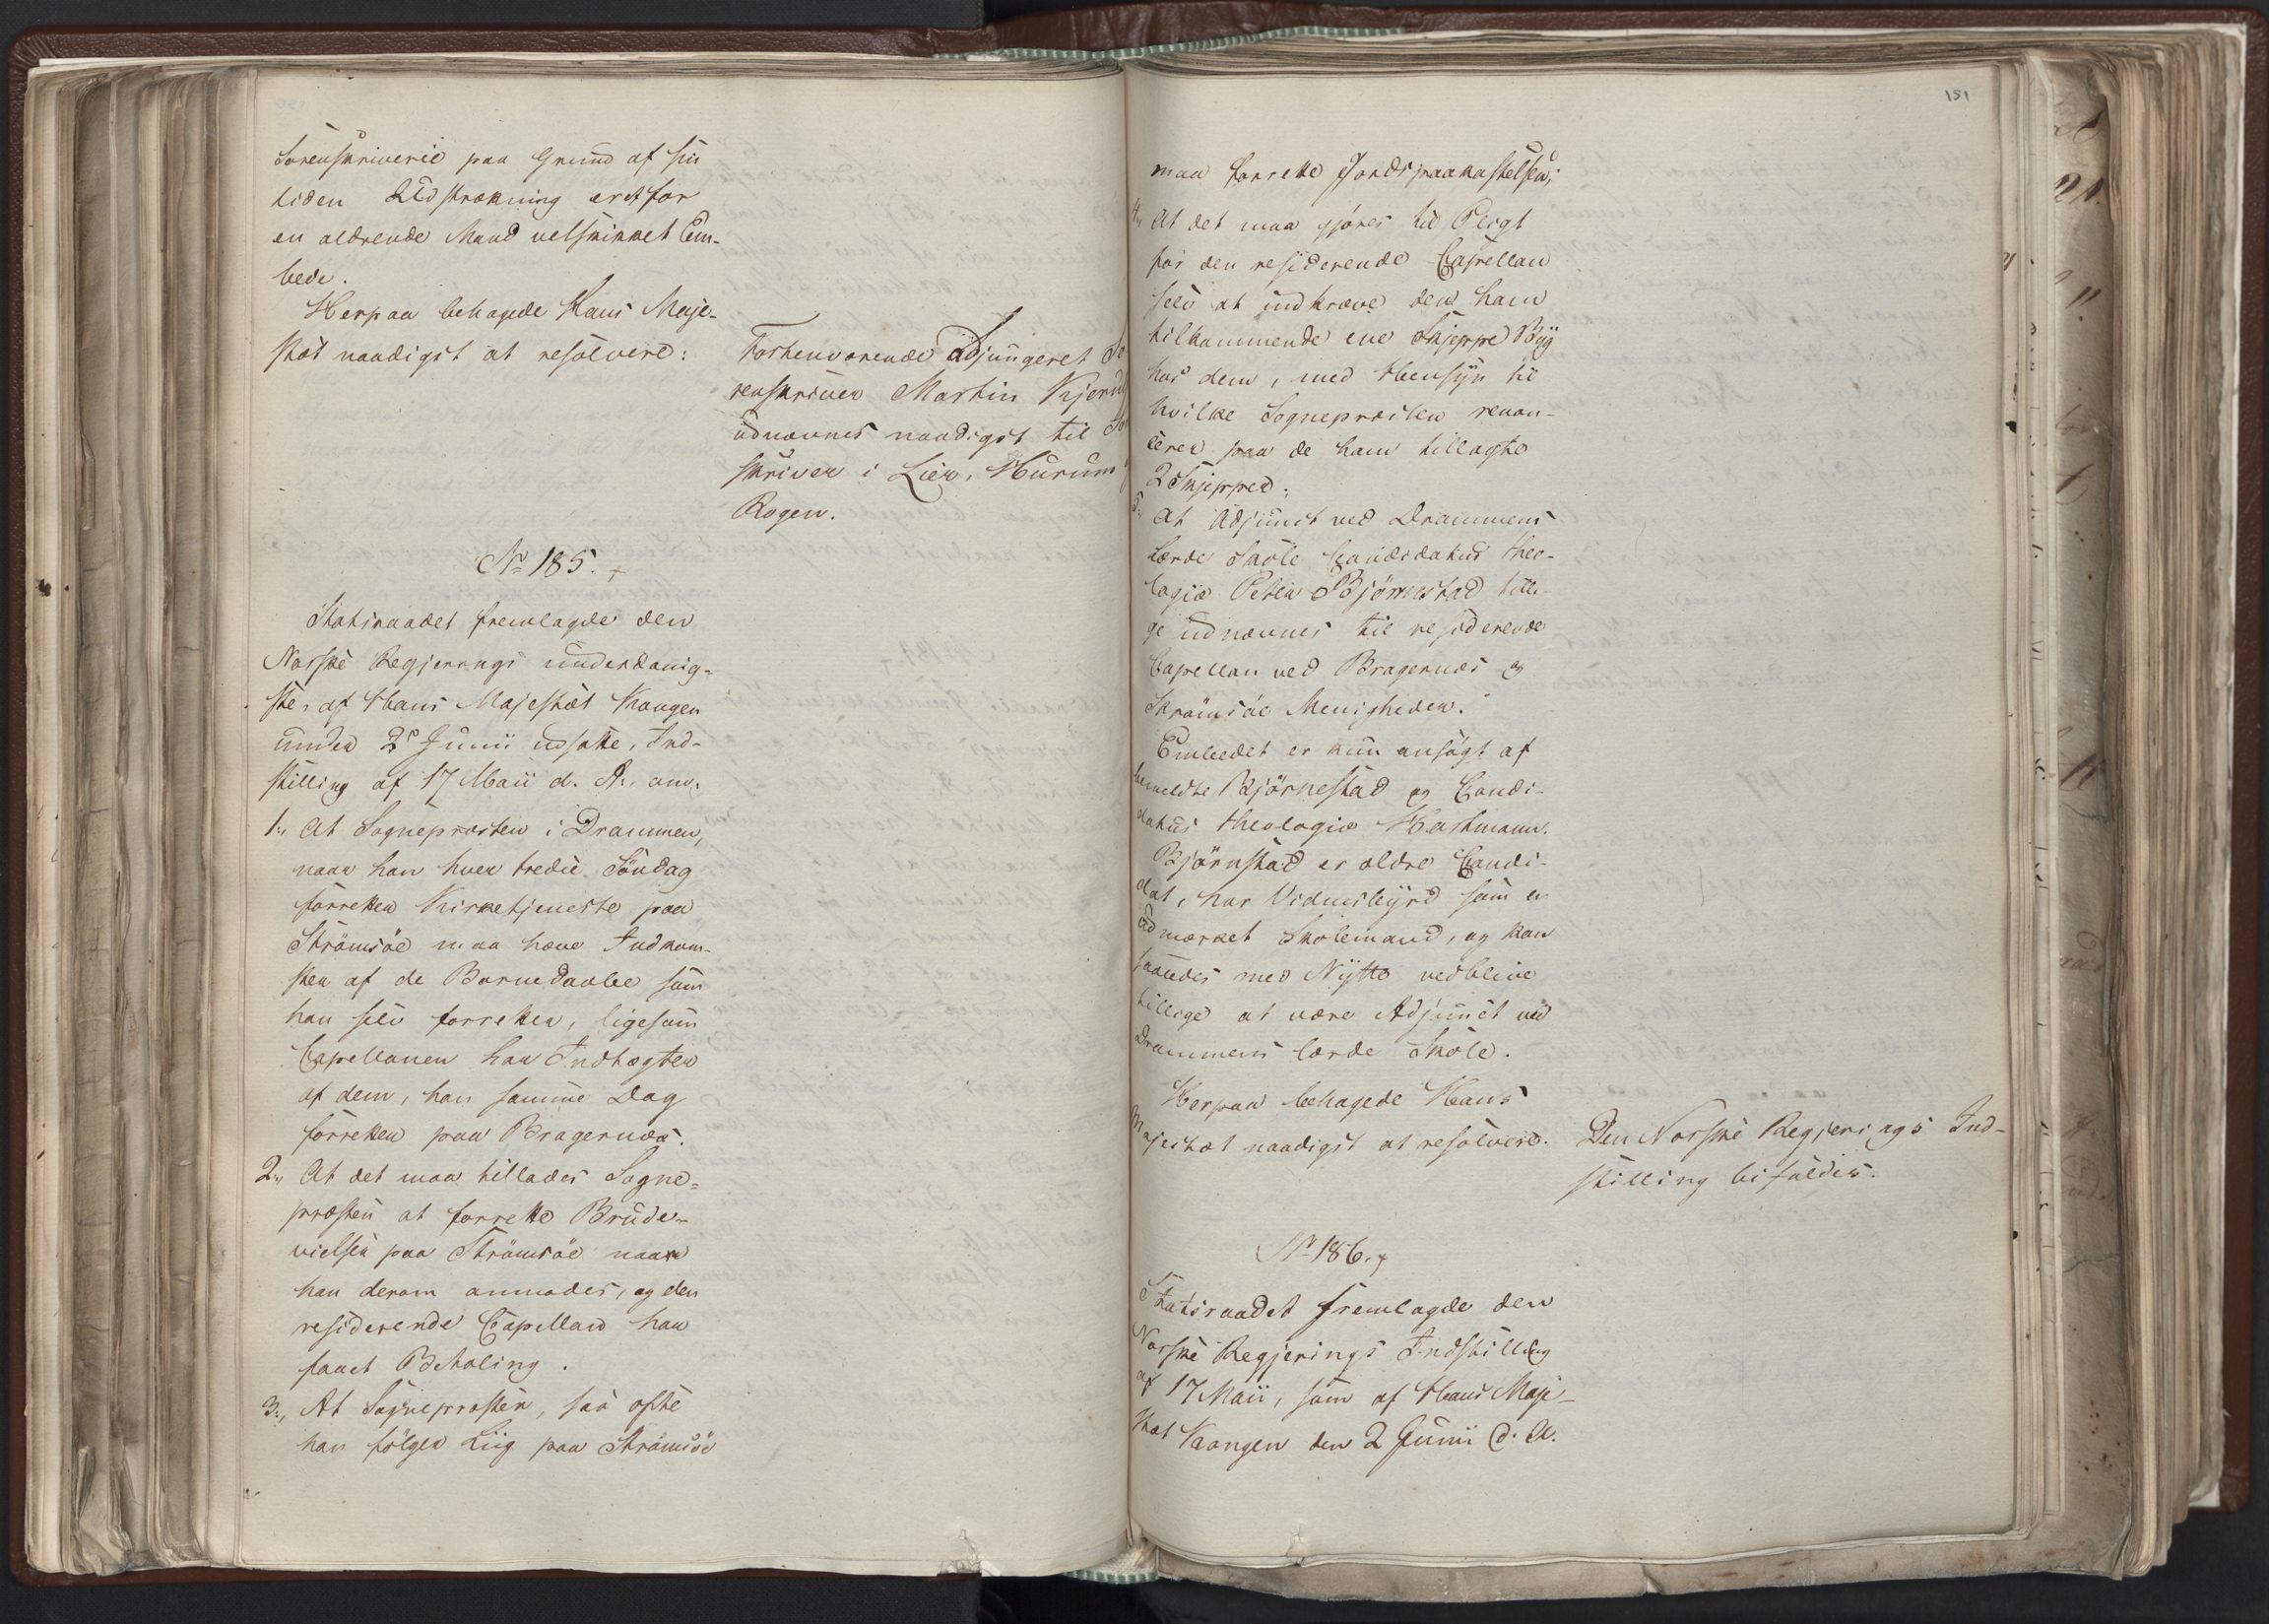 Sorenskriverie paa Grund af sin
liden Udstrækning er et for
en aldrende Mand velskikket Em-
bede.
Herpaa behagede Hans Maje-
stæt naadigst at resolvere:
Forhenværende adjungeret So
renskriver Martin Kjerul
udnævnes naadigst til So
skriver i Lier, Hurum
Rogen.
No 185. +
Statsraadet fremlagde den
Norske Regjerings underdanig-
ste, af Hans Majestæt Kongen
under 2d Junii udsatte, Ind-
stilling af 17 Maii d. A. om:
1., At Sognepræsten i Drammen,
naar han hver tredie Söndag
forretter Kirketjeneste paa
Strömsöe maa hæve Indkom-
sten af de Barnedaabe som
han selv forretter, ligesom
Capellanen har Indtægten
af dem, han samme Dag
forretter paa Bragernæs.
2., At det maa tillades Sogne-
præsten at forrette Brude-
vielser paa Strömsöe naar
han derom anmodes, og den
residerende Capellan har
faaet Betaling.
3., At Sognepræsten, saa ofte
han fölger Liig paa Strömsöe
151
maa forrette Jordspaakastelsen;
4., At det maa gjöres til Pligt
for den residerende Capellan
selv at indkræve den ham
tilkommende ene Skjeppe Byg
hos dem, med Hensyn til
hvilke Sognepræsten renon-
cerer paa de ham tillagte
2 Skjepper;
5., At Adjunct ved Drammens
lærde Skole Candidatus theo-
logiæ Peter Björnestad tilli-
ge udnævnes til residerende
Capellan ved Bragernæs og
Strömsöe Menigheder.
Embedet er kun ansögt af
bemeldte Björnestad og Candi-
datus theologiæ Hartmann.
Björnstad er ældre Candi-
dat, har Vidnesbyrd som en
udmærket Skolemand, og kan
saaledes med Nytte vedblive
tillige at være Adjunct ved
Drammens lærde Skole.
Herpaa behagede Hans
Majestæt naadigst at resolvere.
Den Norske Regjerings Ind-
stilling bifaldes.
No 186. +
Statsraadet fremlagde den
Norske Regjerings Indstilling
af 17 Maii, som af Hans Maje-
stæt Kongen den 2 Junii d. A.